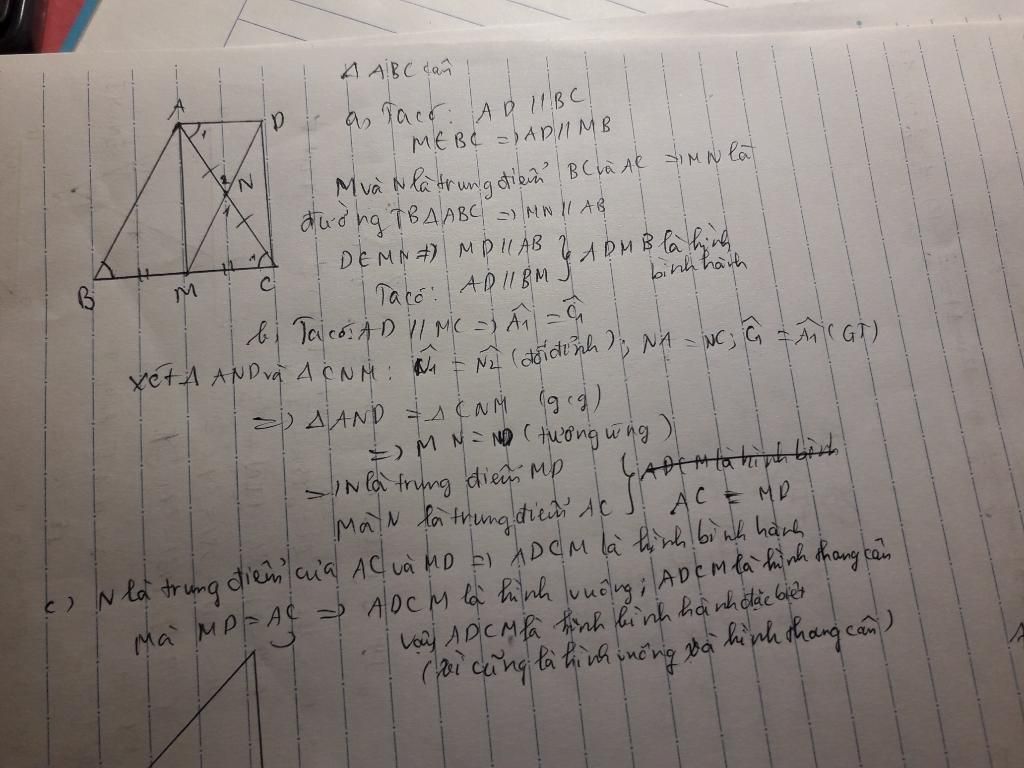 Δ ABC cân
A
D
N
B
M
C
1
2
1
1
a, Ta có: AD // BC
M∈BC => AD // MB
M và N là trung điểm BC và AC => MN là
đường TB ΔABC => MN // AB
D∈MN => MD // AB } ADMB là hình
Ta có: AD // BM bình hành
b, Ta có: AD // MC => Â1 = Ĉ1
xét Δ AND và Δ CNM: N̂1 = N̂2 (đối đỉnh); NA = NC; Ĉ1 = Â1 (GT)
=> Δ AND = Δ CNM (gcg)
=> MN = ND (tương ứng)
=> N là trung điểm MD } ADCM là hình bình
Mà N là trung điểm AC AC = MD
c) N là trung điểm của AC và MD => ADCM là hình bình hành
Mà MD = AC => ADCM là hình vuông; ADCM là hình thang cân
vậy ADCM là hình bình hành đặc biệt
(vì cũng là hình vuông và hình thang cân)
A